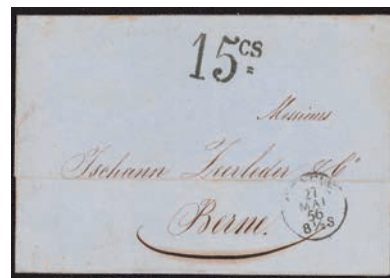 15 cs
Messieurs
Tschann Zeerleder & Co
Berne.
27
MAI
56
8½S